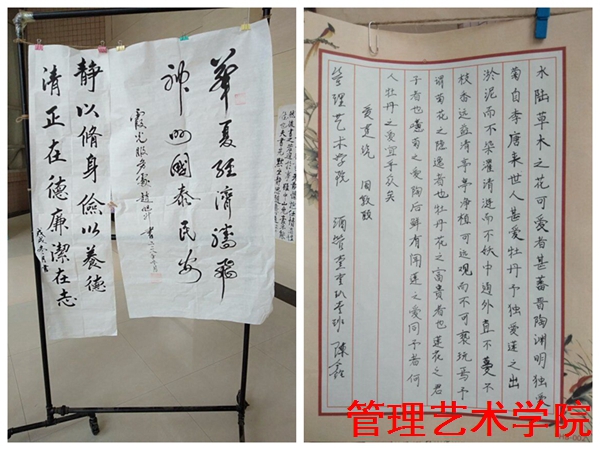 華夏經濟騰飛
神州國泰民安
静以脩身儉以養德
清正在德廉潔在志
水陆草木之花可爱者甚蕃晋陶渊明独爱
菊自李唐来世人甚爱牡丹予独爱莲之出
淤泥而不染濯清涟而不妖中通外直不蔓不
枝香远益清亭亭净植可远观而不可亵玩焉予
谓菊花之隐逸者也牡丹花之富贵者也莲花之君
子者也噫菊之爱陶后鲜有闻莲之爱同予者何
人牡丹之爱宜乎众矣
爱莲说 周敦颐
管理艺术学院 酒管 班 陈磊
管理艺术学院